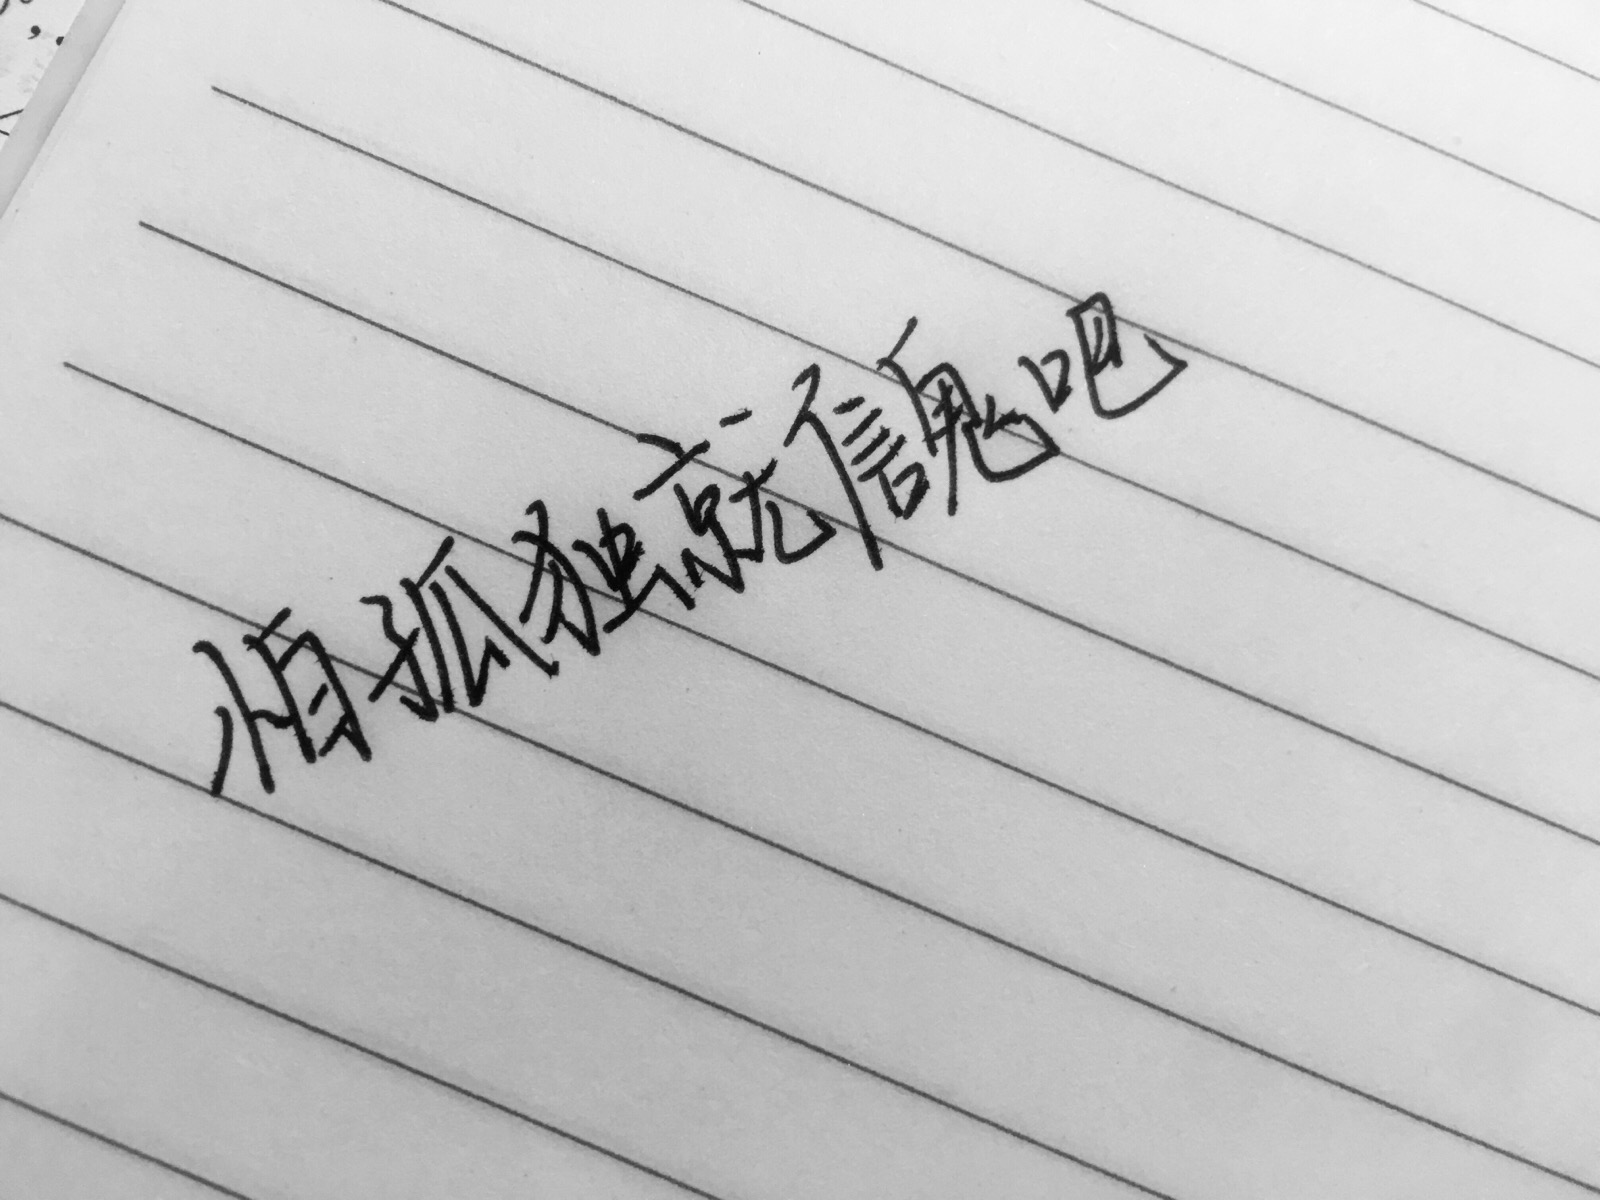 怕孤独就信鬼吧